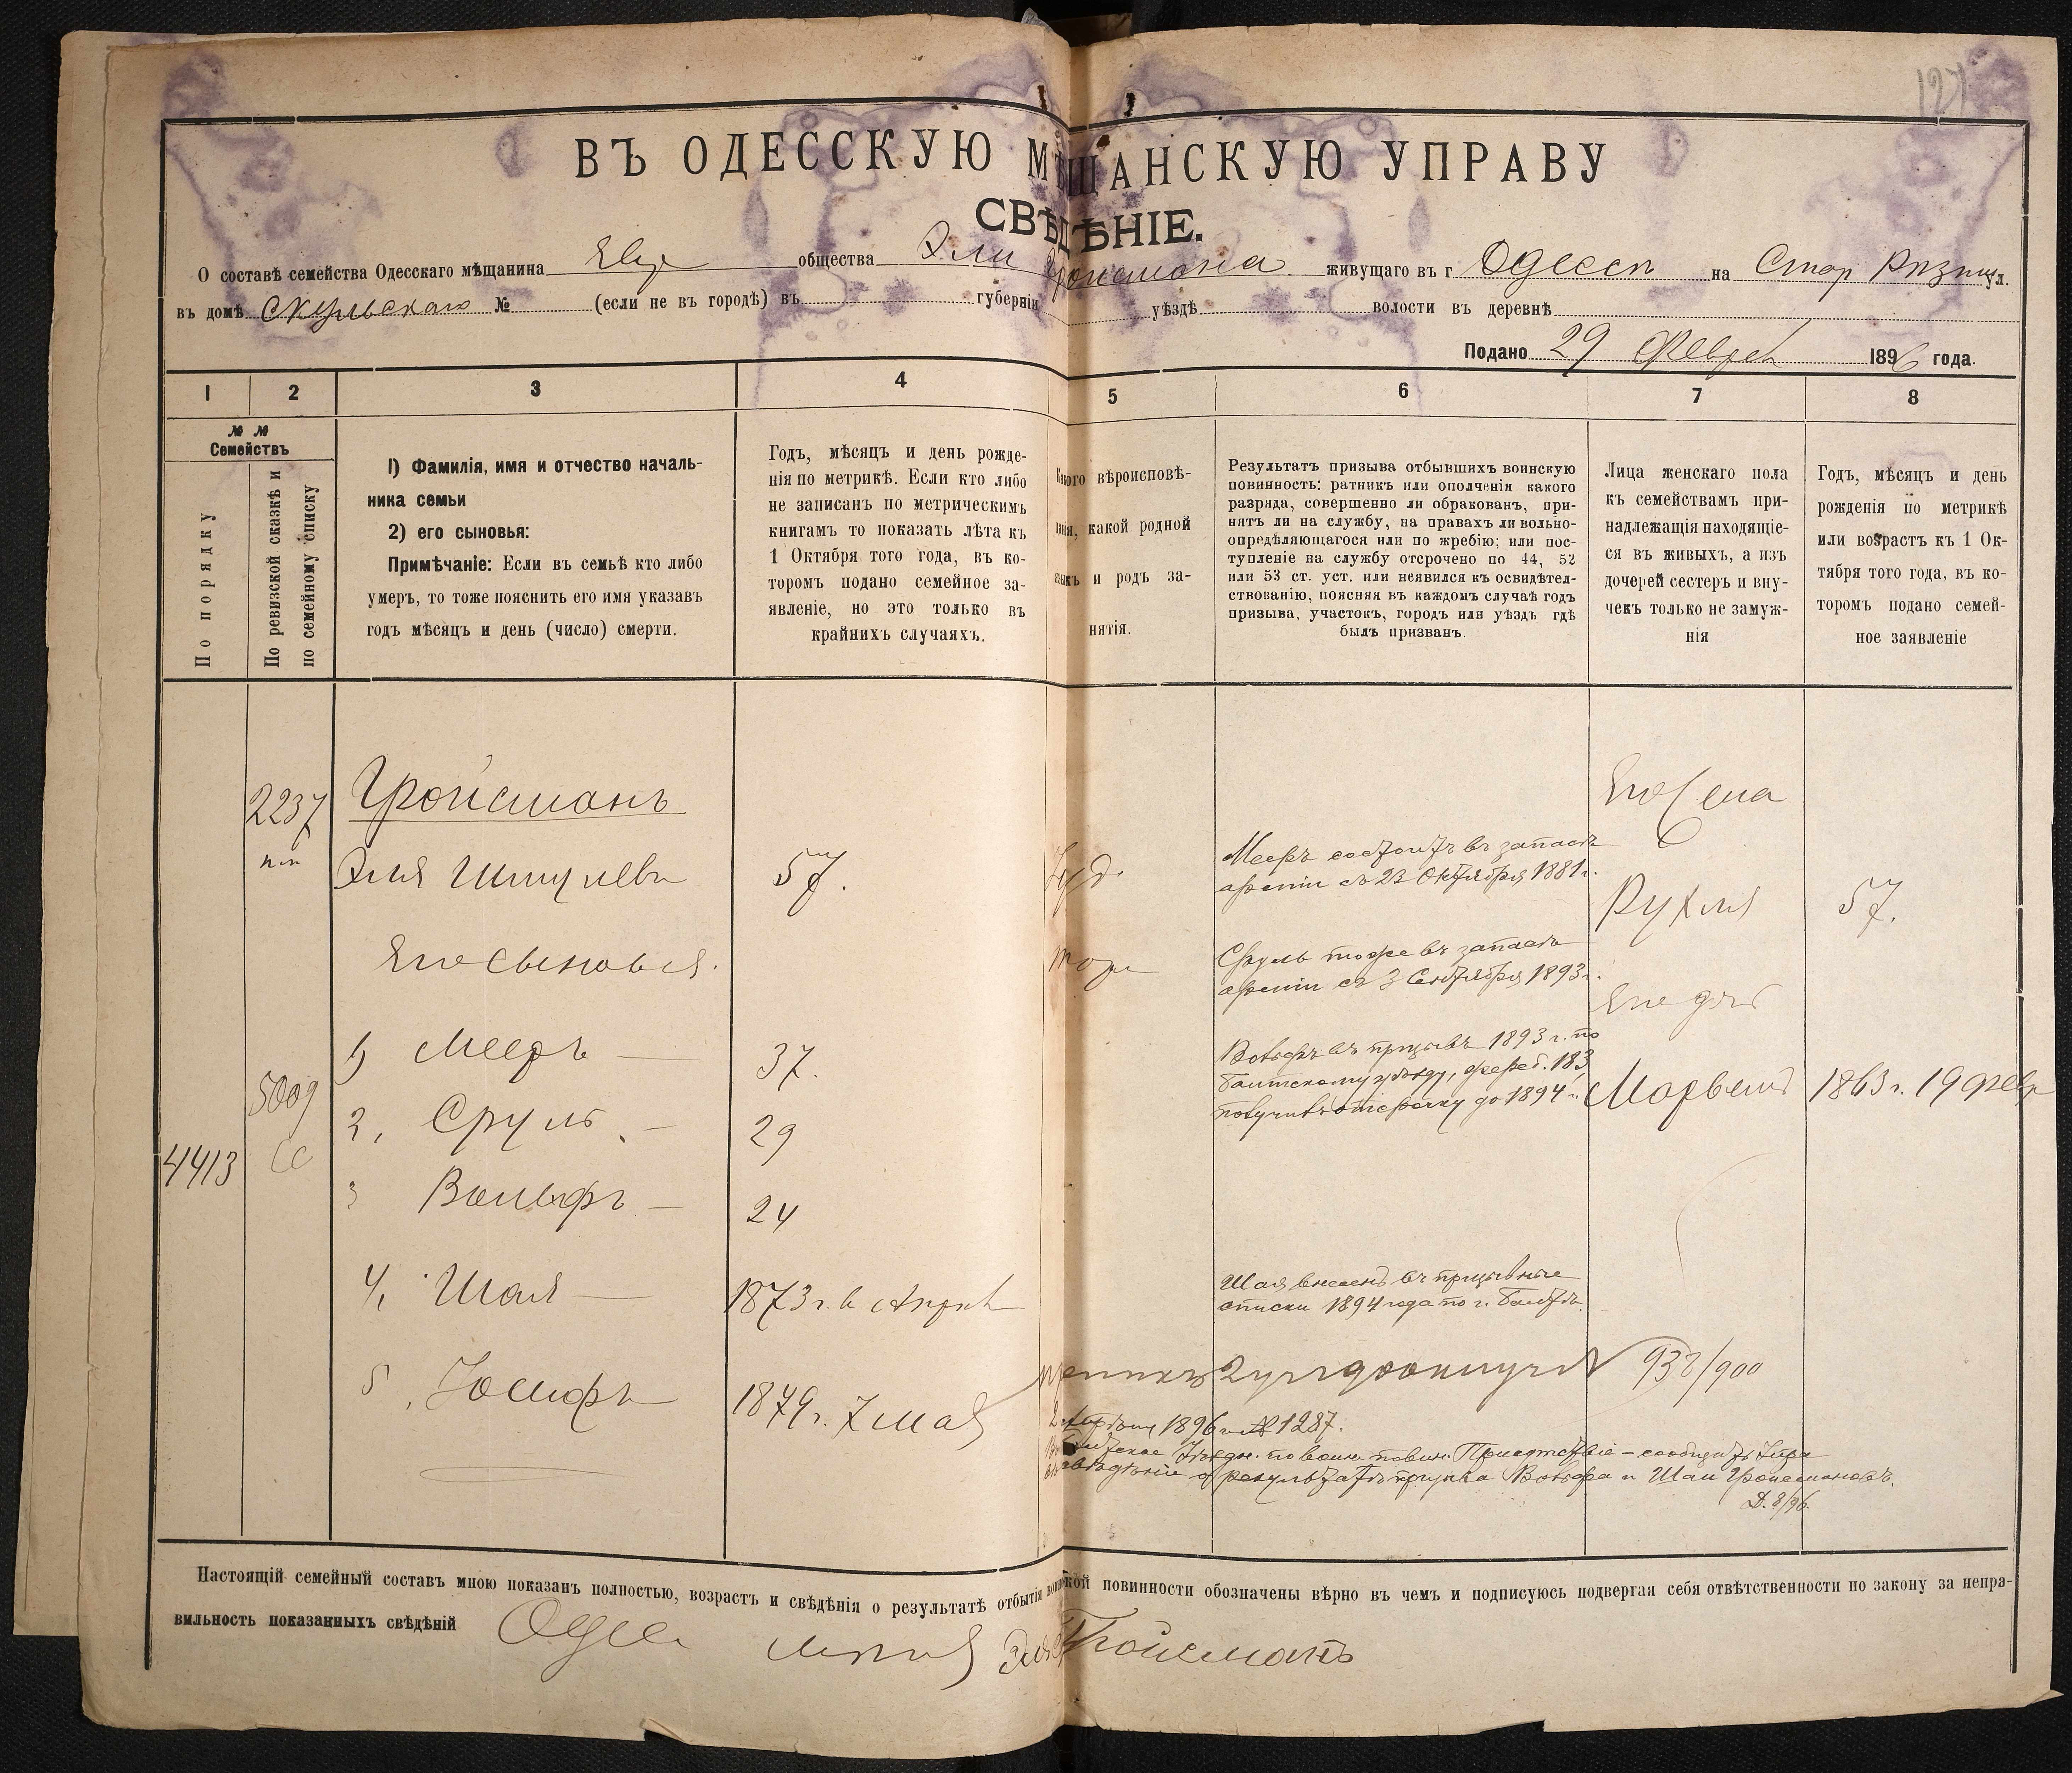 127
ВЪ ОДЕССКУЮ МѢЩАНСКУЮ УПРАВУ
СВѢДѢНІЕ.
О составѣ семейства Одесскаго мѣщанина Евр общества Эли Гройсмана живущаго въ г Одессѣ на Стар Рѣзнич ул.
въ домѣ Скульскаго № (если не въ городѣ) въ губерніи уѣздѣ волости въ деревнѣ
Подано 29 Феврал 1896 года.
1 2 3 4 5 6 7 8
№ №
Семействъ
По порядку
По ревизской сказкѣ и
по семейному списку
1) Фамилія, имя и отчество началь-
ника семьи
2) его сыновья:
Примѣчаніе: Если въ семьѣ кто либо
умеръ, то тоже пояснить его имя указавъ
годъ мѣсяцъ и день (число) смерти.
Годъ, мѣсяцъ и день рожде-
нія по метрикѣ. Если кто либо
не записанъ по метрическимъ
книгамъ то показать лѣта къ
1 Октября того года, въ ко-
торомъ подано семейное за-
явленіе, но это только въ
крайнихъ случаяхъ.
Какого вѣроисповѣ-
данія, какой родной
языкъ и родъ за-
нятія.
Результатъ призыва отбывшихъ воинскую
повинность: ратникъ или ополченія какого
разряда, совершенно ли обракованъ, при-
нятъ ли на службу, на правахъ ли вольно-
опредѣляющагося или по жребію; или пос-
тупленіе на службу отсрочено по 44, 52
или 53 ст. уст. или неявился къ освидѣтел-
ствованію, поясняя въ каждомъ случаѣ годъ
призыва, участокъ, городъ или уѣздъ гдѣ
былъ призванъ.
Лица женскаго пола
къ семействамъ при-
надлежащія находящіе-
ся въ живыхъ, а изъ
дочерей сестеръ и вну-
чекъ только не замуж-
нія
Годъ, мѣсяцъ и день
рожденія по метрикѣ
или возрастъ къ 1 Ок-
тября того года, въ ко-
торомъ подано семей-
ное заявленіе
2237
Гройсманъ
Эля Шмулевъ
57.
Іуд.
Мееръ состоитъ въ запасѣ
арміи съ 23 Октября 1881 г.
Его жена
Рухля
57.
Его сыновья.
тоже
Сруль тоже въ запасѣ
арміи съ 3 Сентября 1893 г.
Его доч
1) Мееръ —
37.
Вольфъ въ призывѣ 1893 г. по
Балтскому уѣзду, жереб. 183,
получивъ отсрочку до 1894 г.
Марьем
1863 г. 19 февр
5009
2, Сруль —
29
4413
3 Вольфъ —
24
4, Шая —
1873 г. в Апрел
Шая внесенъ въ призывные
списки 1894 года по г. Балтѣ.
5, Іосифъ
1879 г. 7 мая
938/900
1896 г. № 1287.
уѣздн. по воин. повин. Присутствіе — сообщить Управ
о результатѣ призыва Вольфа и Шаи Гройсмановъ.
Д. 8/96.
Настоящій семейный составъ мною показанъ полностью, возрастъ и свѣдѣнія о результатѣ отбытія воинской повинности обозначены вѣрно въ чемъ и подписуюсь подвергая себя отвѣтственности по закону за непра-
вильность показанныхъ свѣдѣній
Эля Гройсманъ